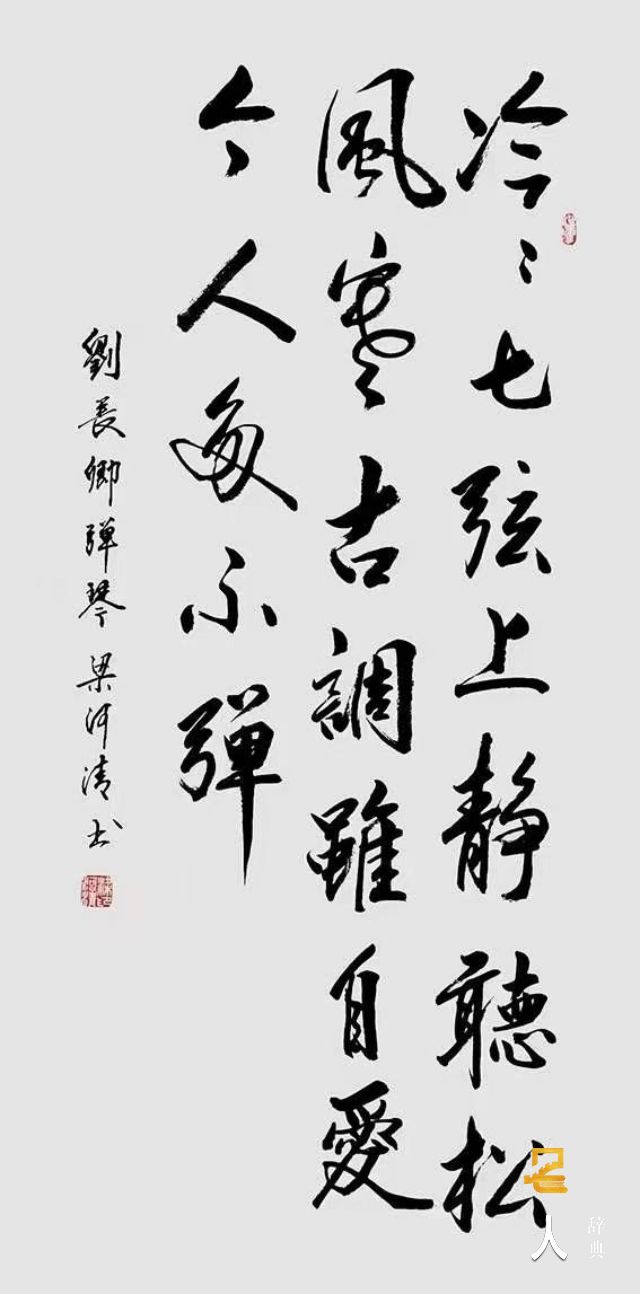 冷〻七弦上靜聽松
風寒古調雖自愛
今人多不彈
劉長卿彈琴 梁河清书
名人
辞典